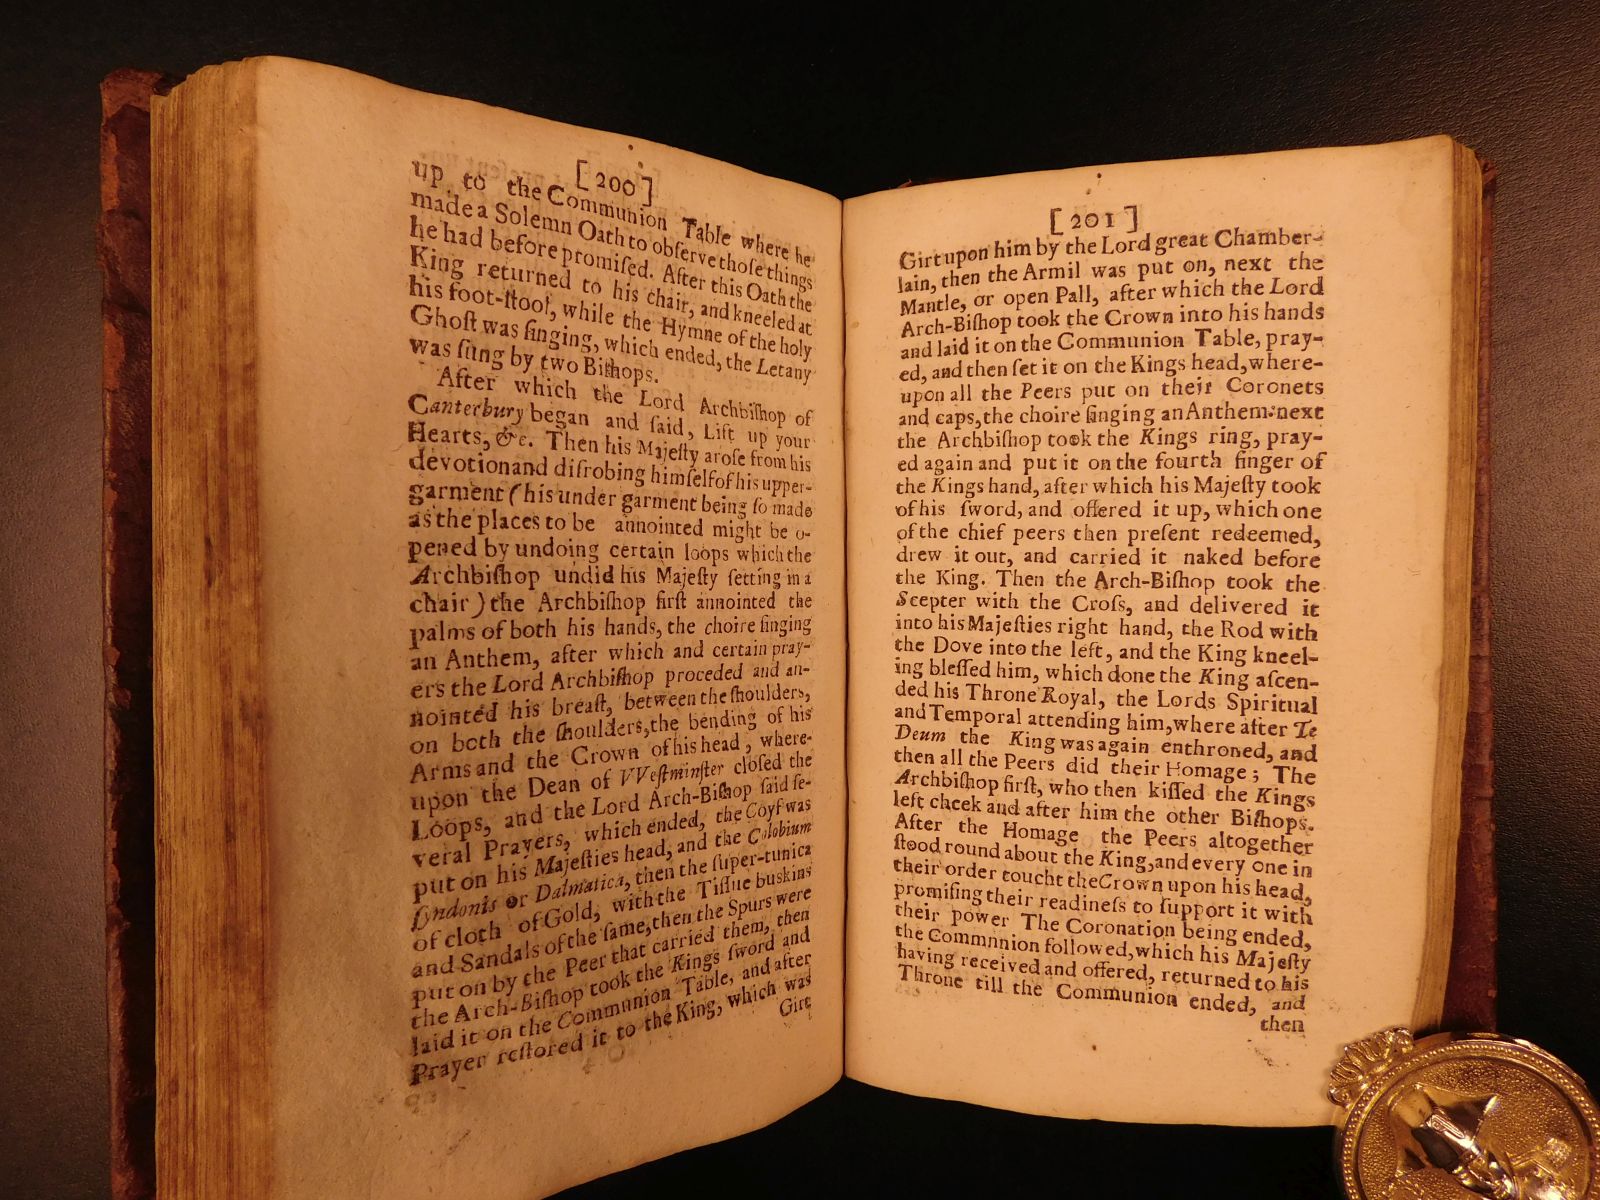 [200]
up to the Communion Table where he
made a Solemn Oath to obſerve thoſe things
he had before promiſed. After this Oath the
King returned to his chair, and kneeled at
his foot-ſtool, while the Hymne of the holy
Ghoſt was ſinging, which ended, the Letany
was ſung by two Biſhops.
After which the Lord Archbiſhop of
Canterbury began and ſaid, Lift up your
Hearts, &c. Then his Majeſty aroſe from his
devotion and diſrobing himſelf of his upper-
garment (his under garment being ſo made
as the places to be annointed might be o-
pened by undoing certain loops which the
Archbiſhop undid his Majeſty ſetting in a
chair) the Archbiſhop firſt annointed the
palms of both his hands, the choire ſinging
an Anthem, after which and certain pray-
ers the Lord Archbiſhop proceded and an-
nointed his breaſt, between the ſhoulders,
on both the ſhoulders, the bending of his
Arms and the Crown of his head, where-
upon the Dean of VVeſtminſter cloſed the
Loops, and the Lord Arch-Biſhop ſaid ſe-
veral Prayers, which ended, the Coyf was
put on his Majeſties head, and the Colobium
ſyndonis or Dalmatica, then the ſuper-tunica
of cloth of Gold, with the Tiſſue buskins
and Sandals of the ſame, then the Spurs were
put on by the Peer that carried them, then
the Arch-Biſhop took the Kings ſword and
laid it on the Communion Table, and after
Prayer reſtored it to the King, which was
Girt
[201]
Girt upon him by the Lord great Chamber-
lain, then the Armil was put on, next the
Mantle, or open Pall, after which the Lord
Arch-Biſhop took the Crown into his hands
and laid it on the Communion Table, pray-
ed, and then ſet it on the Kings head, where-
upon all the Peers put on their Coronets
and caps, the choire ſinging an Anthem: next
the Archbiſhop took the Kings ring, pray-
ed again and put it on the fourth finger of
the Kings hand, after which his Majeſty took
of his ſword, and offered it up, which one
of the chief peers then preſent redeemed,
drew it out, and carried it naked before
the King. Then the Arch-Biſhop took the
Scepter with the Croſs, and delivered it
into his Majeſties right hand, the Rod with
the Dove into the left, and the King kneel-
ing bleſſed him, which done the King aſcen-
ded his Throne Royal, the Lords Spiritual
and Temporal attending him, where after Te
Deum the King was again enthroned, and
then all the Peers did their Homage; The
Archbiſhop firſt, who then kiſſed the Kings
left cheek and after him the other Biſhops.
After the Homage the Peers altogether
ſtood round about the King, and every one in
their order toucht the Crown upon his head,
promiſing their readineſs to ſupport it with
their power The Coronation being ended,
the Commnnion followed, which his Majeſty
having received and offered, returned to his
Throne till the Communion ended, and
then